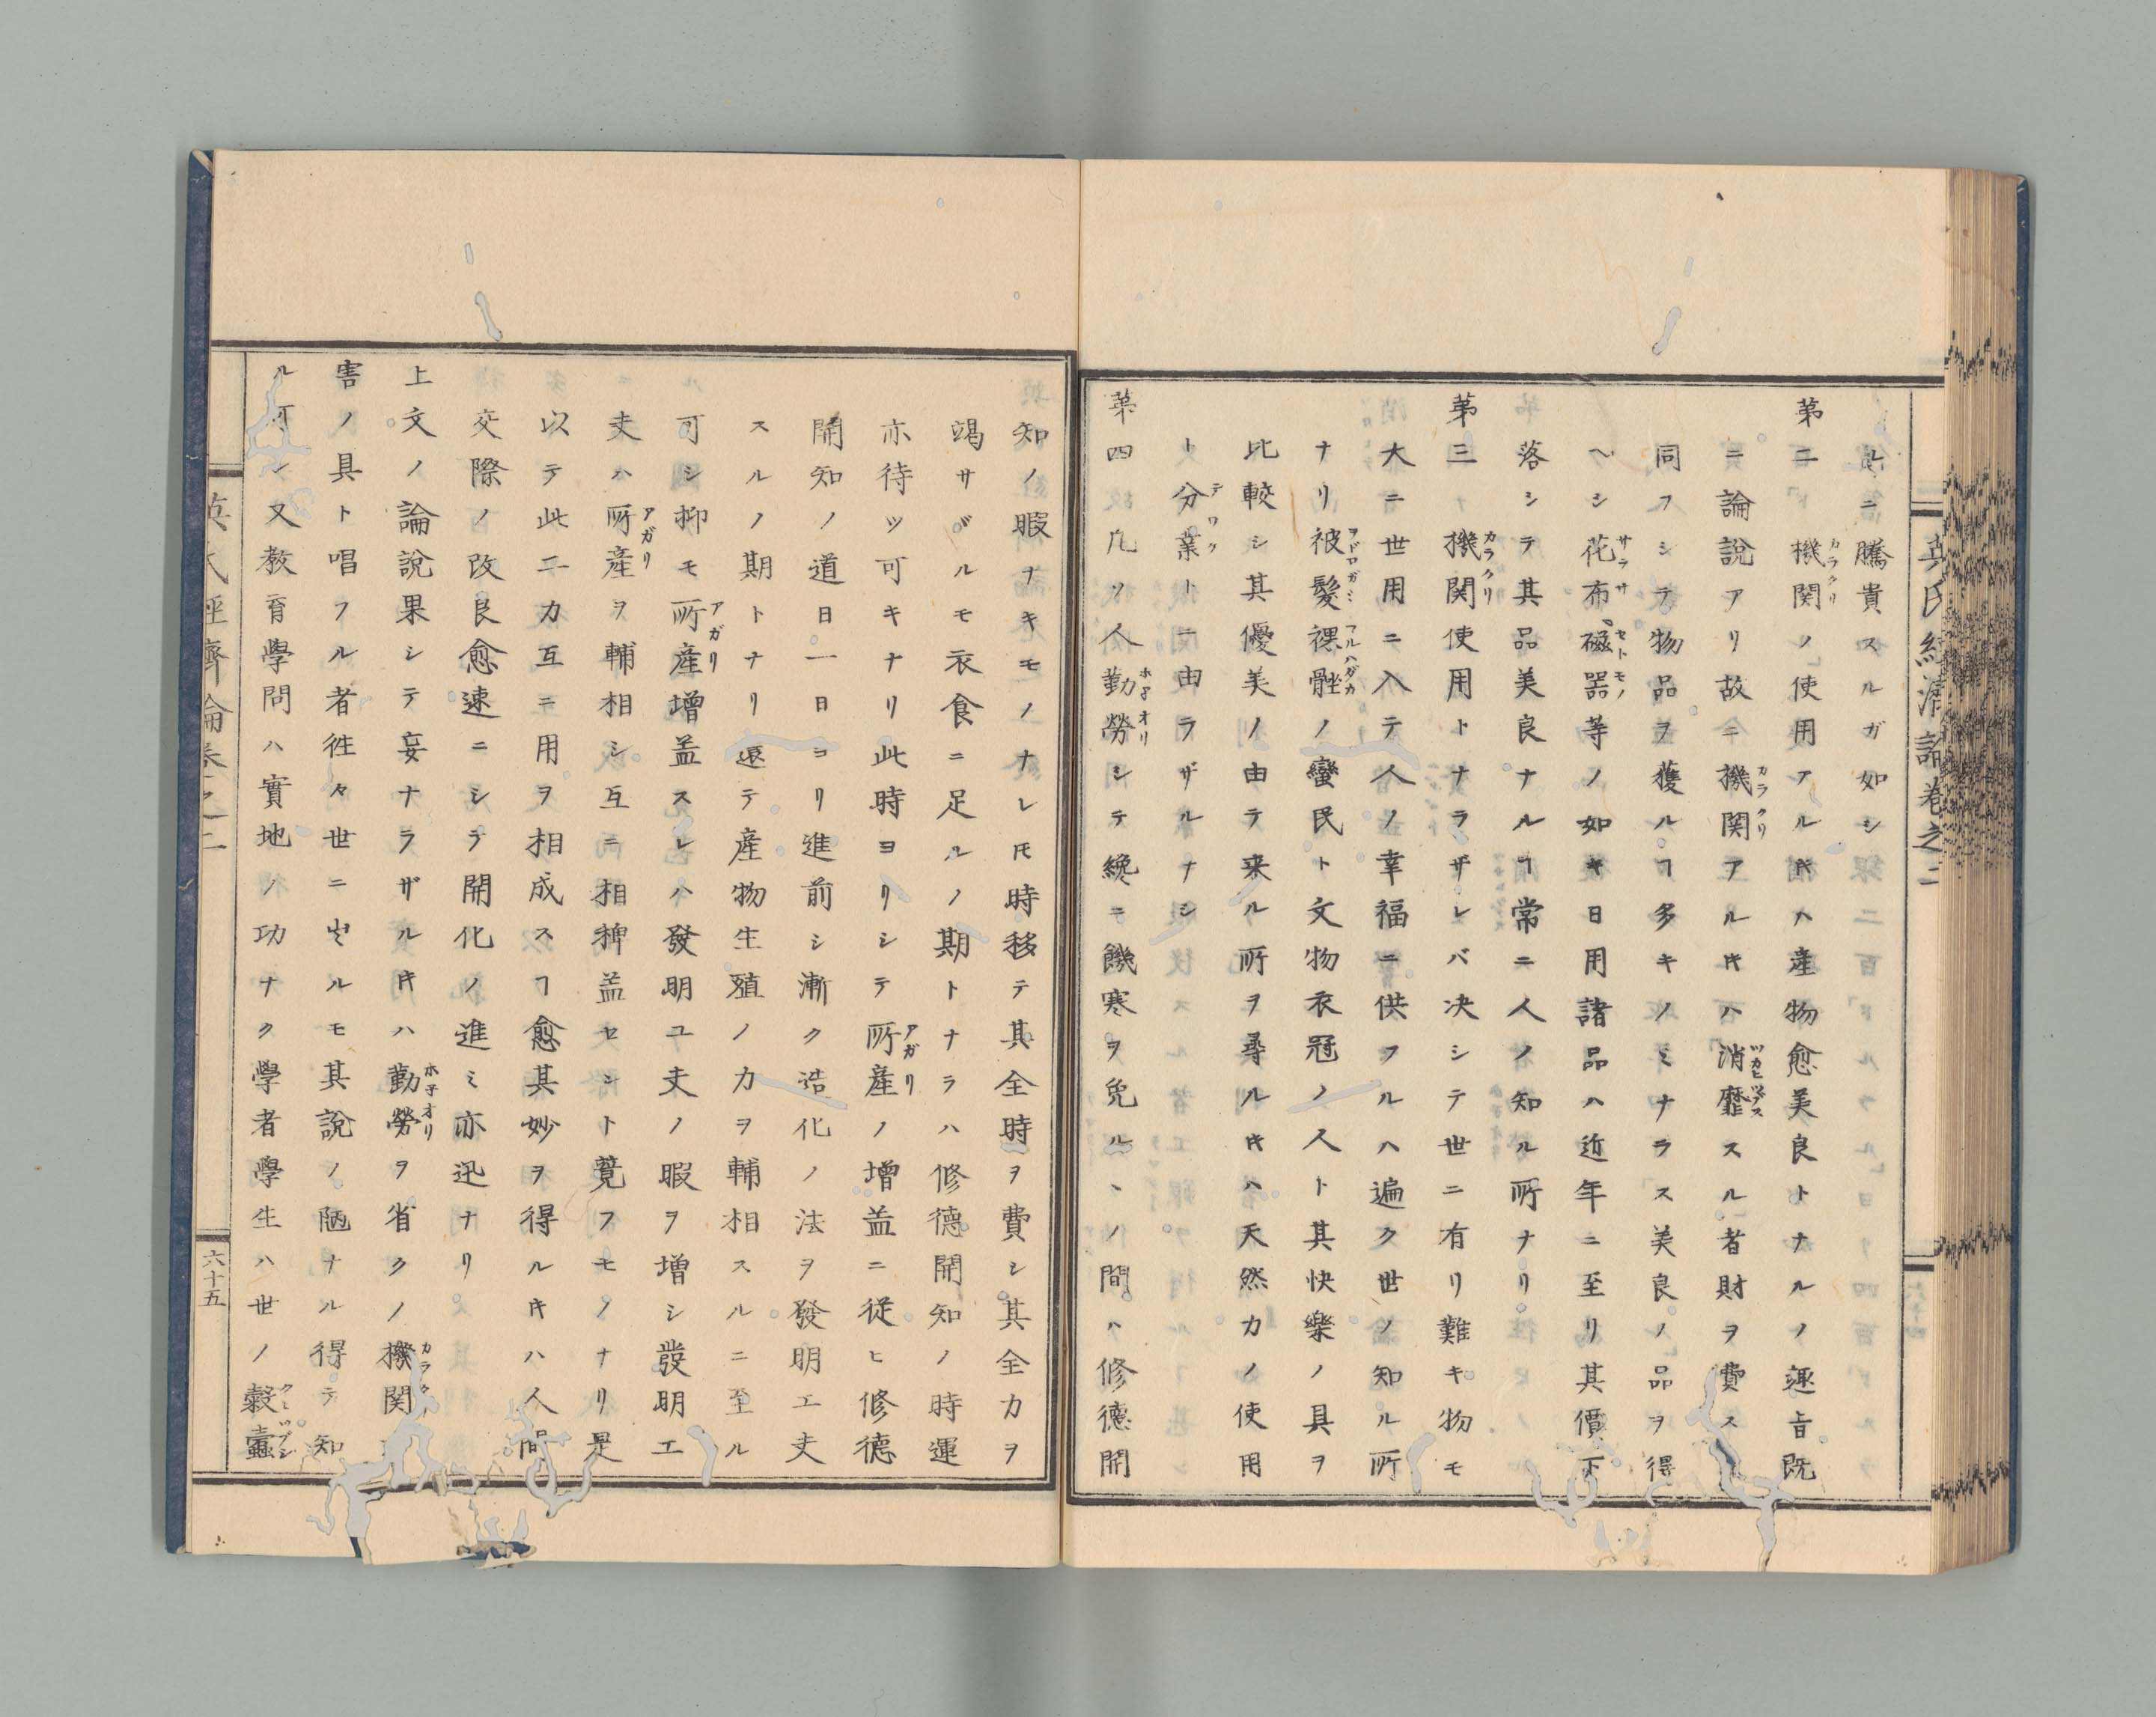 英氏經濟論卷之二
レニ騰貴スルガ如シ
第二 機関ノ使用アルヰハ産物愈美良トナルノ趣旨既
ニ論説アリ故ニ機関アルヰハ消靡スル者財ヲ費ス
同フシテ物品ヲ獲ルヿ多キノミナラス美良ノ品ヲ得
ヘシ花布磁器等ノ如キ日用諸品ハ近年ニ至リ其價下
落シテ其品美良ナルヿ常ニ人ノ知ル所ナリ
第三 機関使用トナラザレバ决シテ世ニ有リ難キ物モ
大ニ世用ニ入テ人ノ幸福ニ供フルハ遍ク世ノ知ル所
ナリ被髮裸躰ノ蠻民ト文物衣冠ノ人ト其快樂ノ具ヲ
比較シ其優美ノ由テ来ル所ヲ尋ルキハ天然力ノ使用
ト分業トニ由ラザルナシ
第四 凡ソ人勤勞シテ纔ニ饑寒ヲ免ルヽノ間ハ修德開
知ノ暇ナキモノナレ𪜈時移テ其全時ヲ費シ其全力ヲ
竭サヾルモ衣食ニ足ルノ期トナラハ修德開知ノ時運
亦待ツ可キナリ此時ヨリシテ所産ノ增益ニ従ヒ修德
開知ノ道日一日ヨリ進前シ漸ク造化ノ法ヲ發明工夫
スルノ期トナリ還テ産物生殖ノ力ヲ輔相スルニ至ル
可シ抑モ所産增益スレハ發明工夫ノ暇ヲ增シ發明工
夫ハ所産ヲ輔相シ互ニ相裨益セント覓フモノナリ是
以テ此二カ互ニ用ヲ相成スヿ愈其妙ヲ得ルキハ人間
交際ノ改良愈速ニシテ開化ノ進ミ亦迅ナリ
上文ノ論説果シテ妄ナラザルキハ勤勞ヲ省クノ機関
害ノ具ト唱フル者徃々世ニ出ルモ其說ノ陋ナル得テ知
ル可シ又教育學問ハ實地ノ功ナク學者學生ハ世ノ穀蠧
英氏經濟論卷之二
六十五